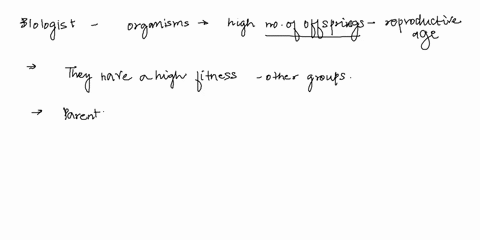 Biologist - organisms → high no. of offsprings - reproductive age
→ They have a high fitness - other groups.
→ Parent